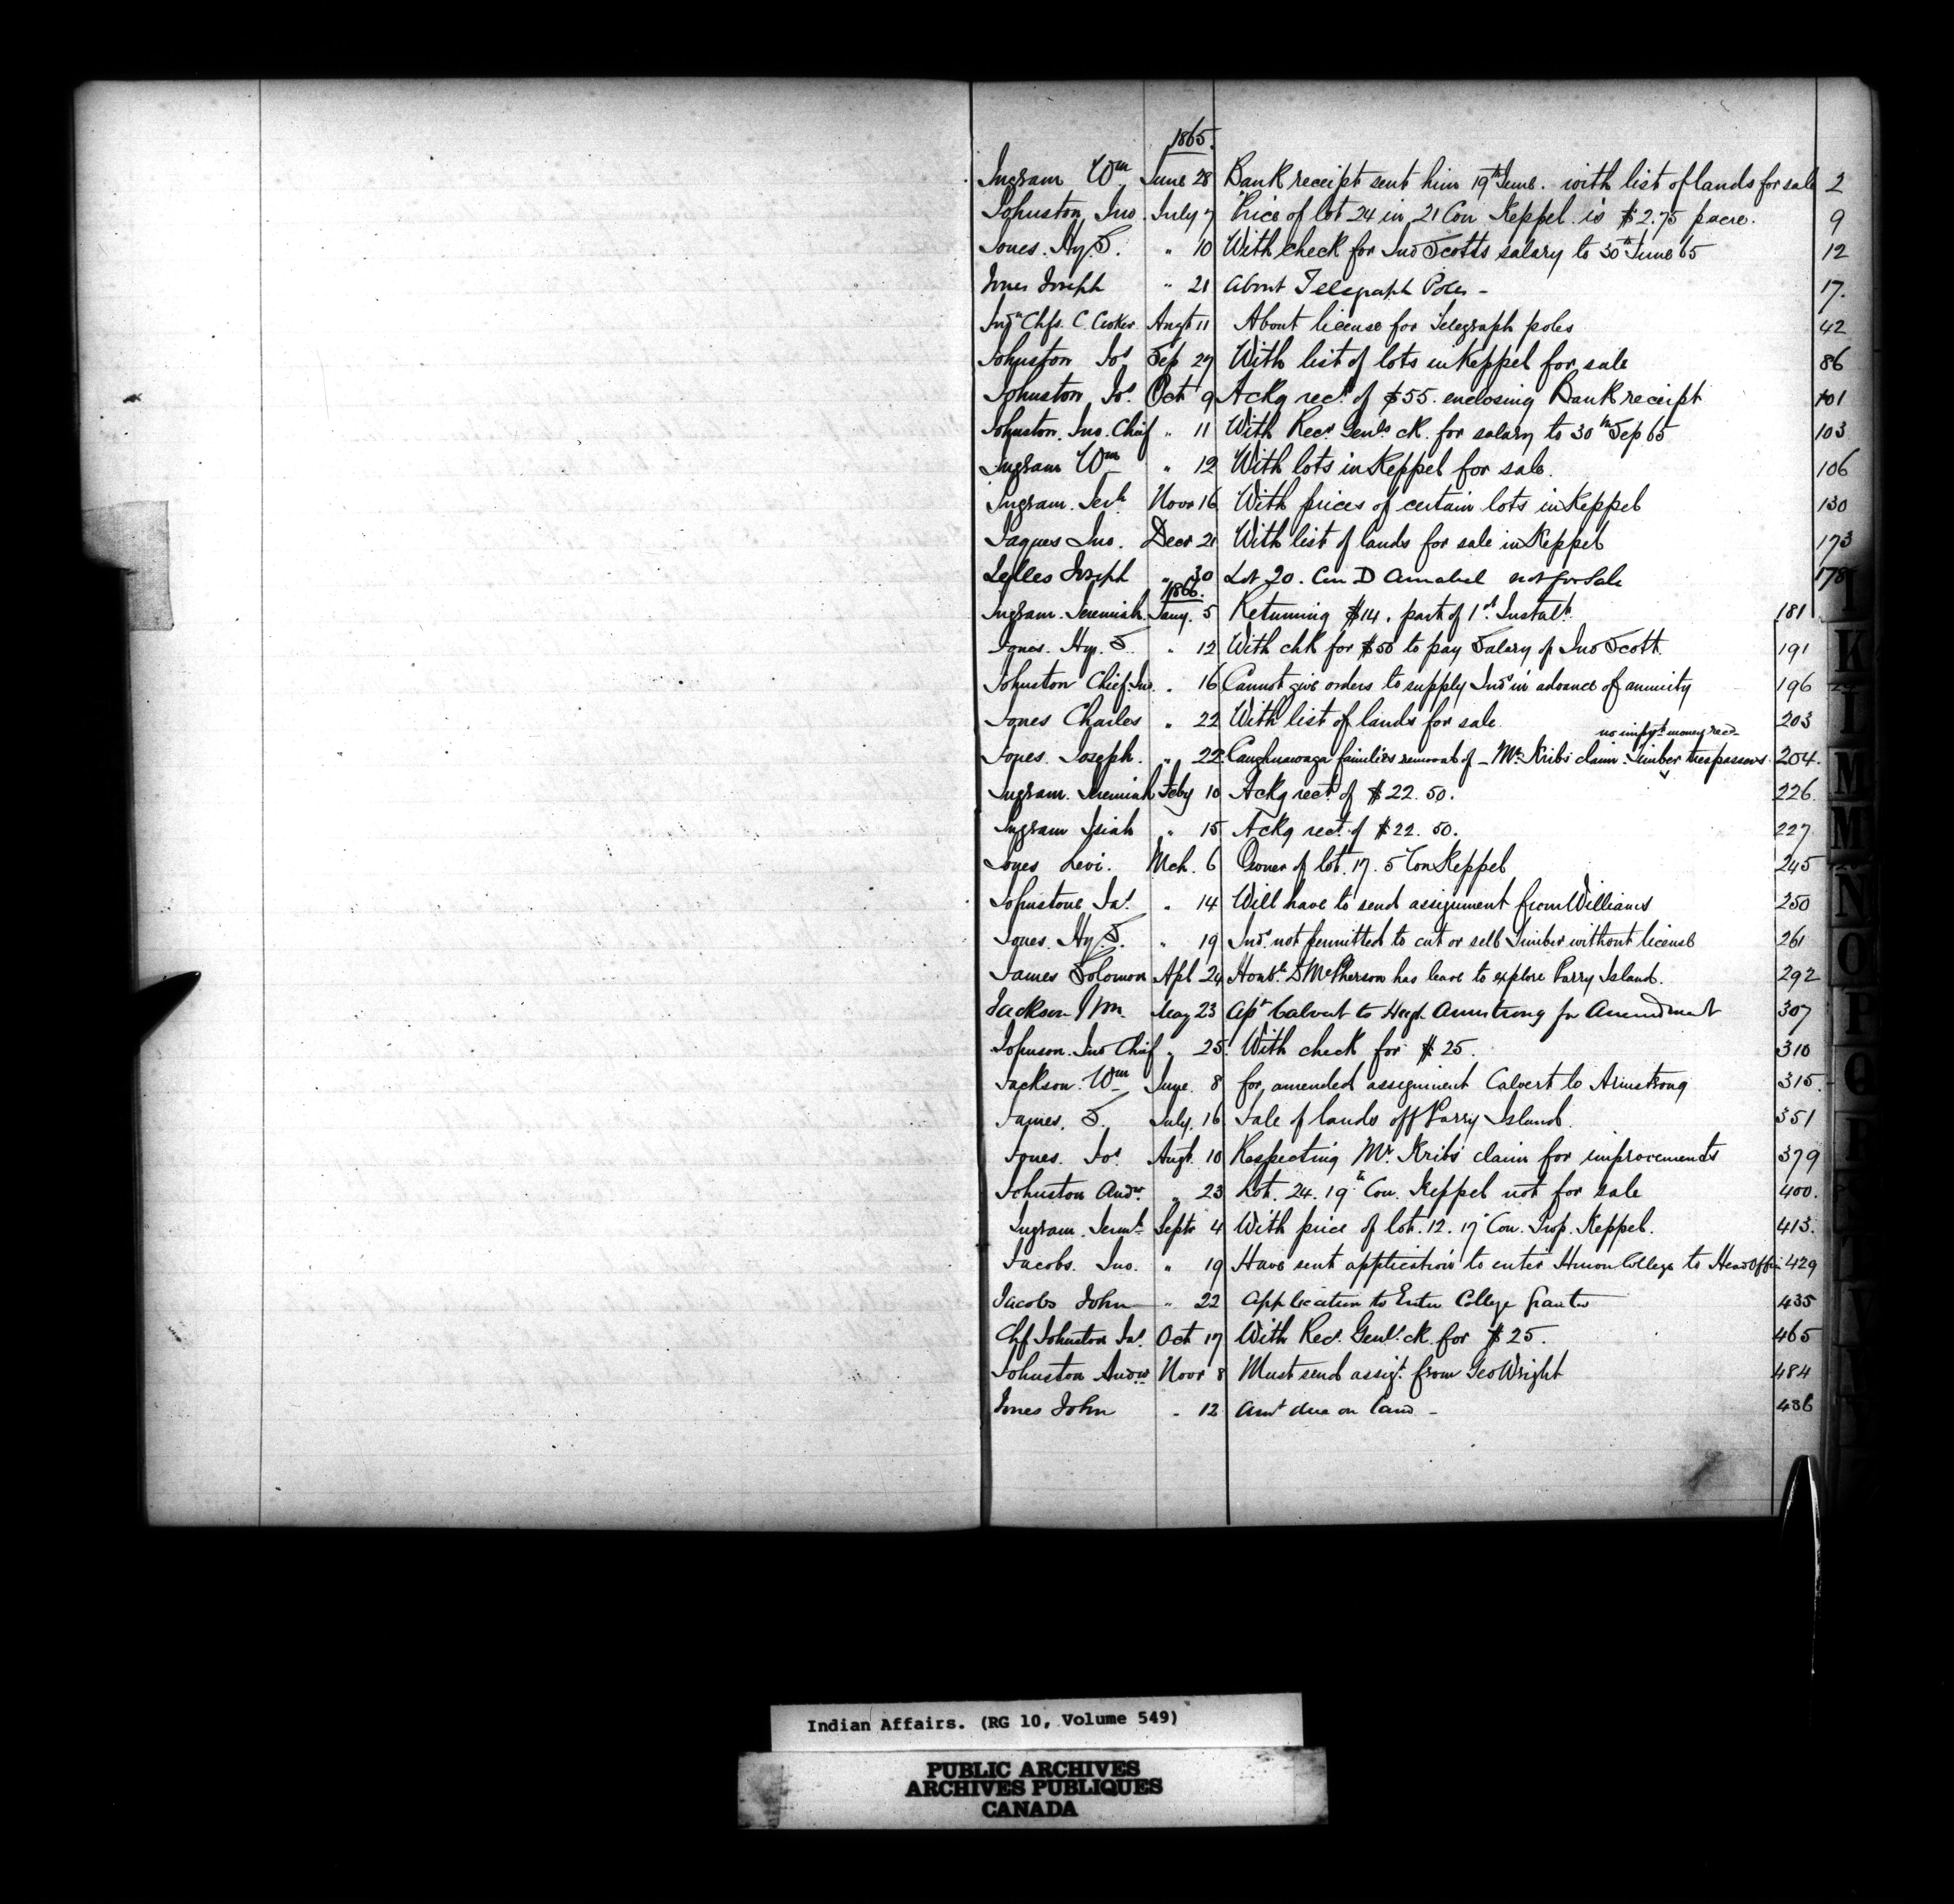 1865.
Ingram Wm June 28 Bank receipt sent him 19th June. with list of lands for sale 2
Johnston, Jno. July 7 Price of lot 24 in 21 Con Keppel is $2.75 p acre. 9
Jones. Hy. S. " 10 With check for Jno Scotts salary to 30th June 65 12
Jones Joseph " 21 About Telegraph Poles - 17.
Indn Chfs. C. Croker Augt 11 About license for Telegraph poles 42
Johnston Jos Sep 27 With list of lots in Keppel for sale 86
Johnston Js. Oct 9 Ackg rect of $55. enclosing Bank receipt 101
Johnston. Jno. Chief " 11 With Recr Genls ck. for salary to 30th Sep 65 103
Ingram Wm " 12 With lots in Keppel for sale. 106
Ingram. Jerh Novr 16 With prices of certain lots in Keppel 130
Jaques Jno. Decr 21 With list of lands for sale in Keppel 173
Joseph " 30 Lot 20. Con D Amabel not for Sale 178
1866.
Ingram. Jeremiah. Jany. 5 Returning $14. part of 1st Instalt. 181
Jones. Hy. S. " 12 With chk for $50 to pay Salary of Jno Scott. 191
Johnston Chief. Jno. " 16 Cannot give orders to supply Inds in advance of annuity 196
Jones Charles " 22 With list of lands for sale 203
no impt. money recd
Jones. Joseph. " 22 Caughnawaga families removal of - Mr. Kribs claim. Timber trespassers. 204.
Ingram. Jeremiah Feby 10 Ackg rect of $22.50. 226
Ingram Isiah " 15 Ackg rect. of $22.50. 227
Jones Levi. Mch. 6 Owner of lot. 17. 5 Con Keppel 245
Johnstone Jas. " 14 Will have to send assignment from Williams 250
Jones. Hy. S. " 19 Inds. not permitted to cut or sell Timber without license 261
James Solomon Apl 24 Honble D McPherson has leave to explore Parry Island. 292
Jackson Wm. May 23 Calvert to Hugh Armstrong for Amendment 307
Johnson. Jno Chief " 25. With check for $25. 310
Jackson. Wm June 8 for, amended assignment Calvert to Armstrong 315.
James. S. July. 16 Sale of lands off Parry Island. 351
Jones. Jos. Augt. 10 Respecting Mr. Kribs' claim for improvements 379
Johnston Andw. " 23 Lot. 24. 19th Con. Keppel not for sale 400.
Ingram. Jermh Septr 4 With price of lot. 12. 17 Con. Keppel. 413.
Jacobs. Jno. " 19 Have sent application to enter Huron College to Head Office 429
Jacobs John " 22 Application to Enter College Granted 435
Chf Johnston Jas. Oct 17 With Recr. Genls. ck. for $25. 465
Johnston Andw Novr 8 Must send assigt. from Geo Wright 484
Jones John " 12 Amt due on Land - 486
I
K
I
M
M
N
O
P
Q
Indian Affairs. (RG 10, Volume 549)
PUBLIC ARCHIVES
ARCHIVES PUBLIQUES
CANADA